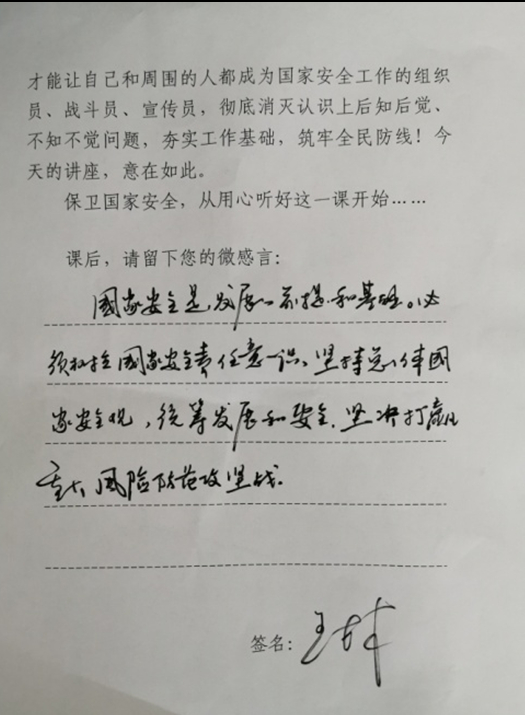 才能让自己和周围的人都成为国家安全工作的组织
员、战斗员、宣传员，彻底消灭认识上后知后觉、
不知不觉问题，夯实工作基础，筑牢全民防线！今
天的讲座，意在如此。
保卫国家安全，从用心听好这一课开始……
课后，请留下您的微感言：
國家安全是发展的前提和基础。必
须和国家安全责任意识、坚持总体國
家安全观，统筹发展和安全，坚决打赢
重大风险防范攻坚战.
签名：王